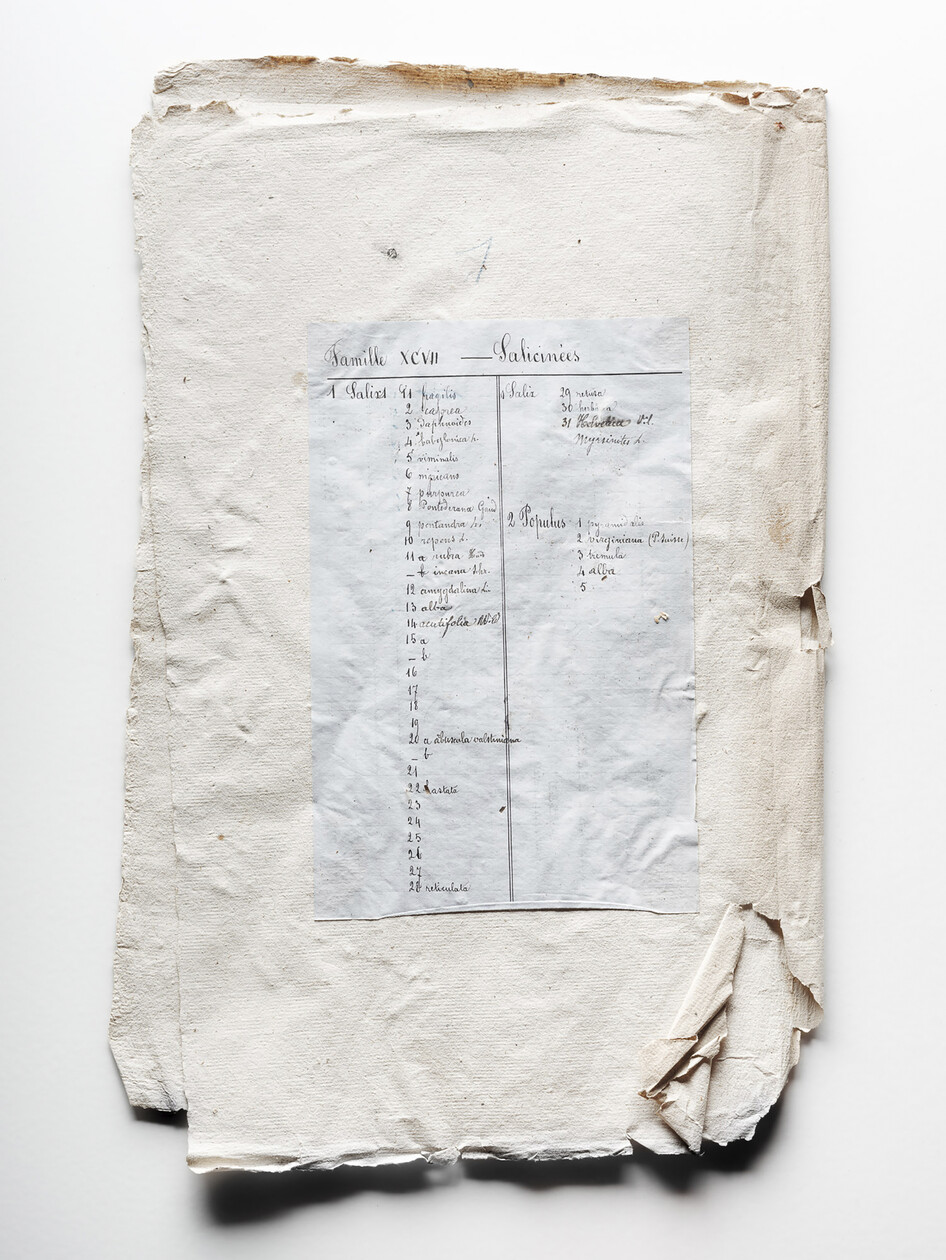 1
Famille XCVII — Salicinées
1 Salix 1 fragilis
2 caprea
3 daphnoides
4 babylonica L.
5 viminalis
6 nigricans
7 purpurea
8 Pontederana Gaud
9 pentandra L.
10 repens L.
11 a rubra Hud
_ b incana Shr.
12 amygdalina L.
13 alba
14 acutifolia Wild
15 a
_ b
16
17
18
19
20 a abuscula valstiniana
_ b
21
22 hastata
23
24
25
26
27
28 reticulata
1 Salix 29 retusa
30 herbacea
31 Helvetica Vil.
Myrsinites L.
2 Populus 1 pyramidalis
2 virginiana (P. suisse)
3 tremula
4 alba
5